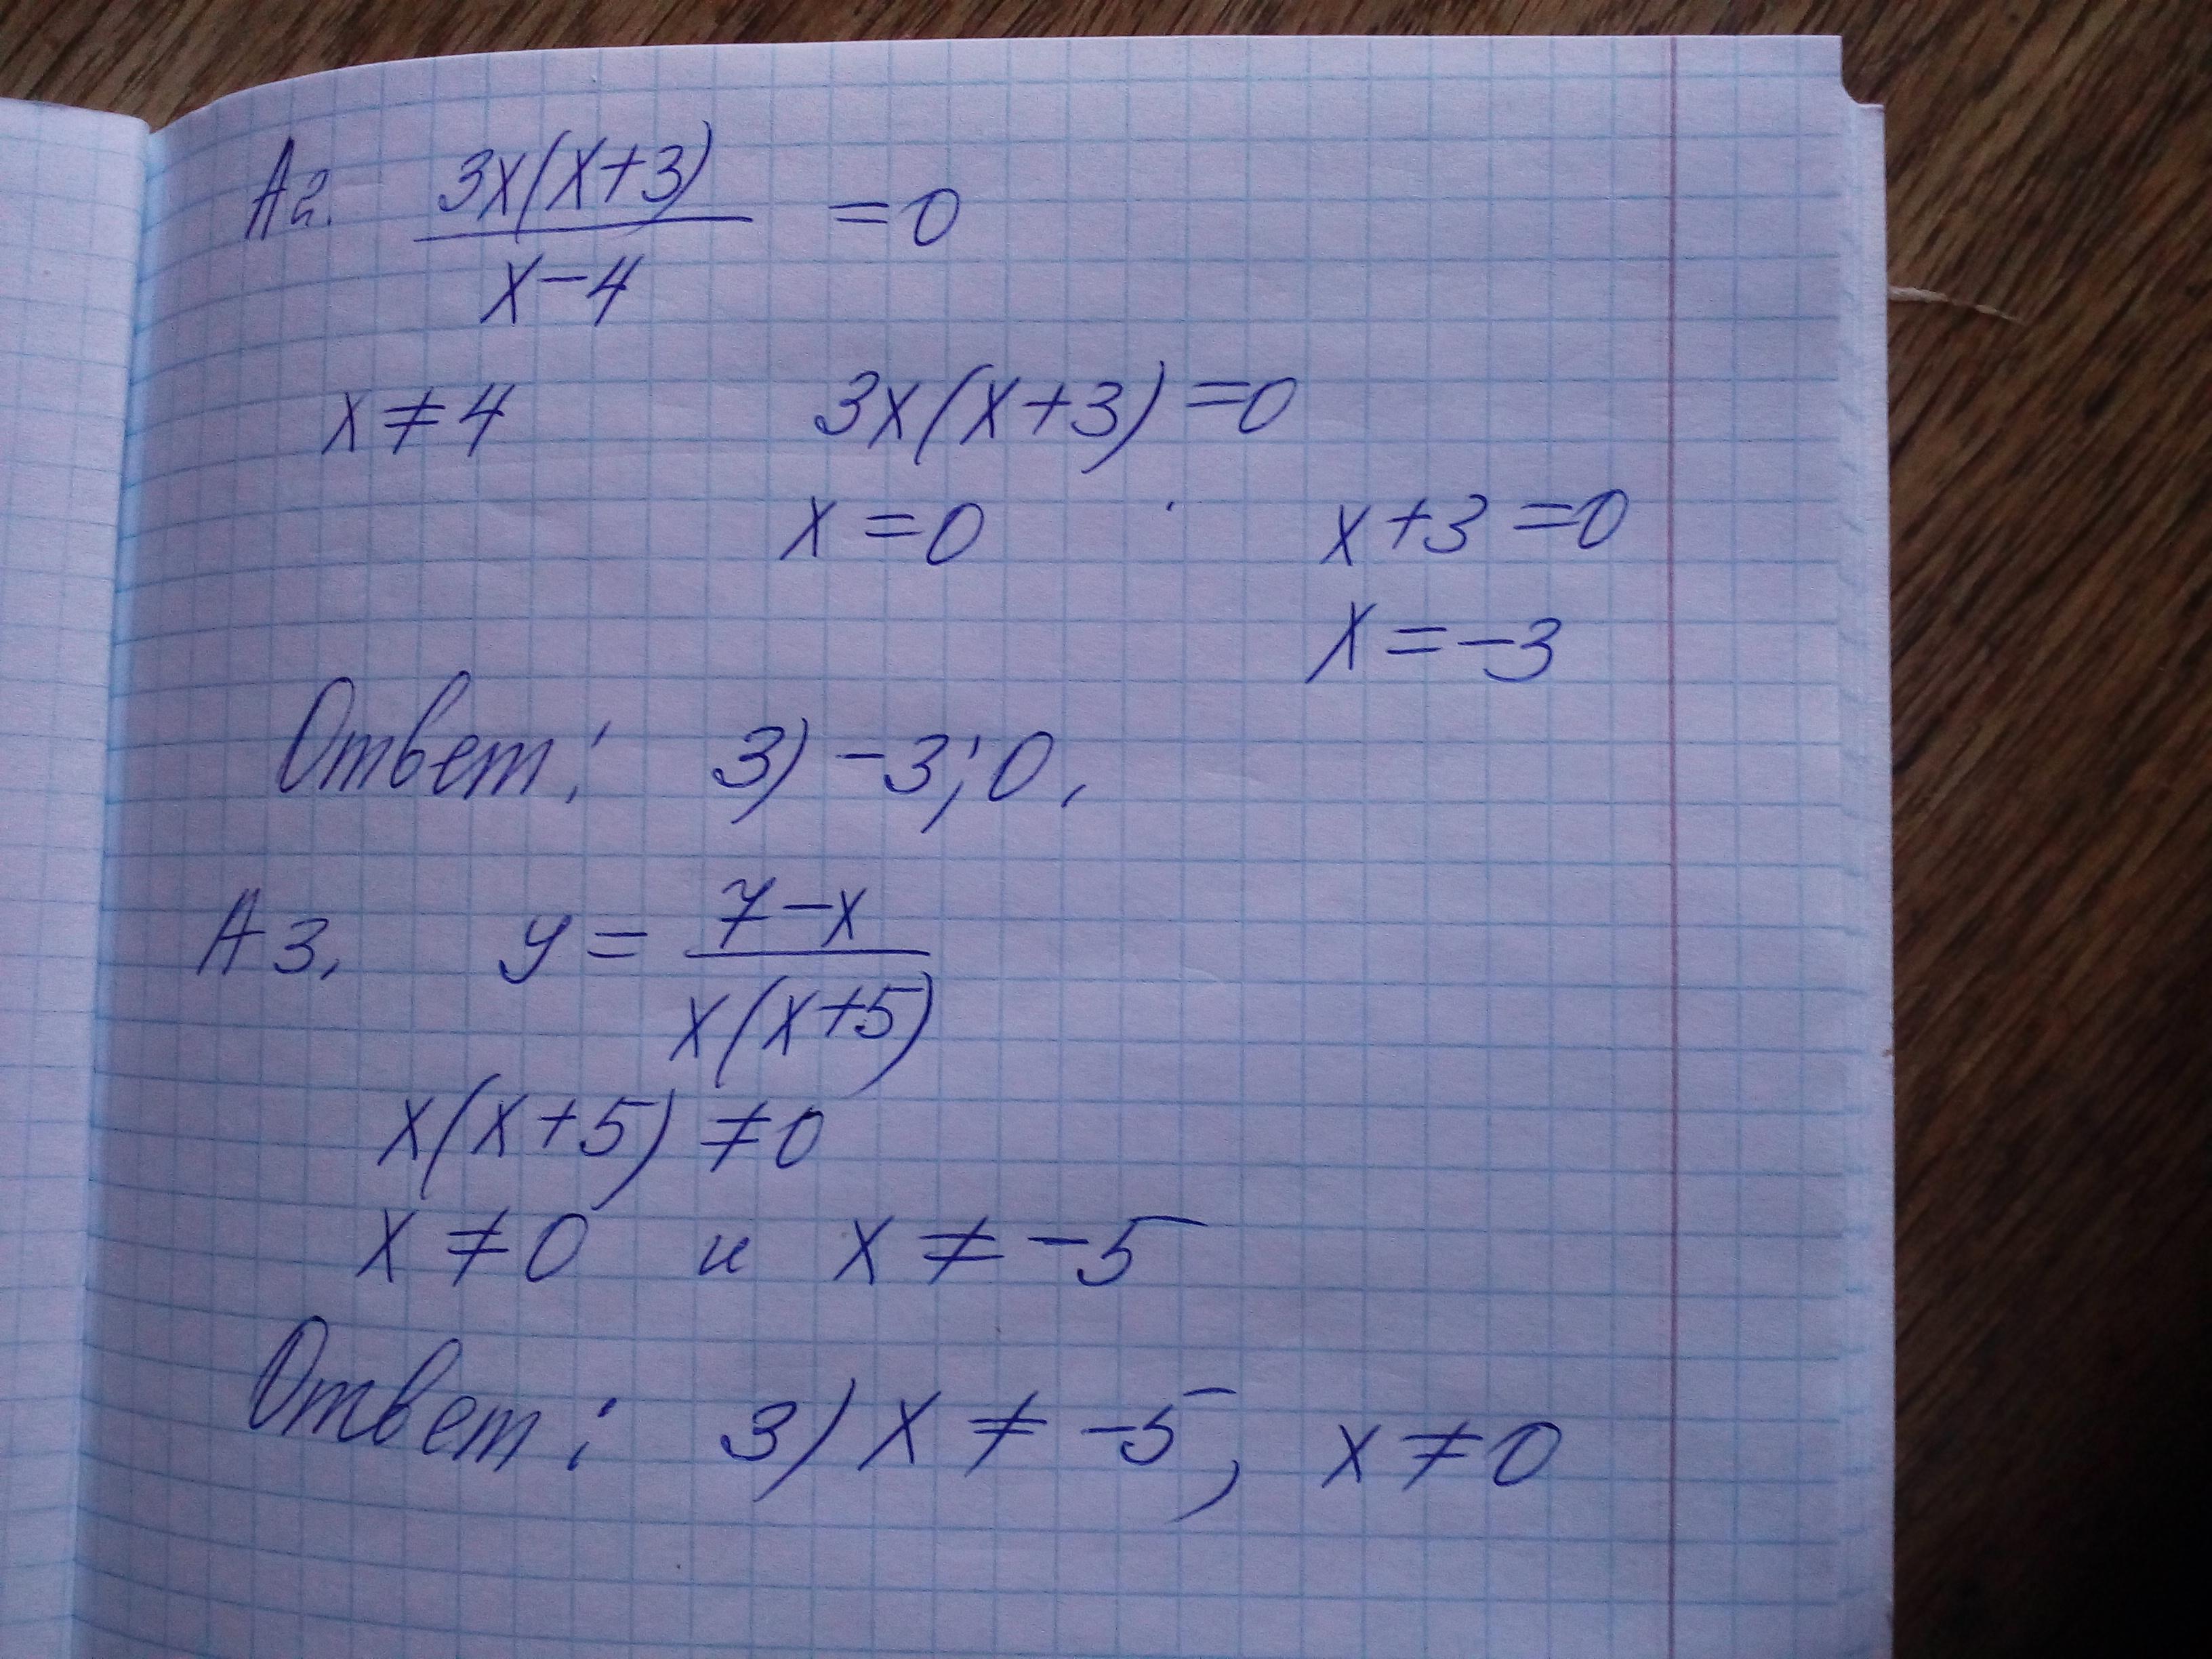 А2. 3x(x+3)/x-4 =0
x≠4 3x(x+3)=0
x=0 x+3=0
x=-3
Ответ: 3) -3; 0.
А3. y= 7-x/x(x+5)
x(x+5)≠0
x≠0 и x≠-5
Ответ: 3) x≠-5, x≠0